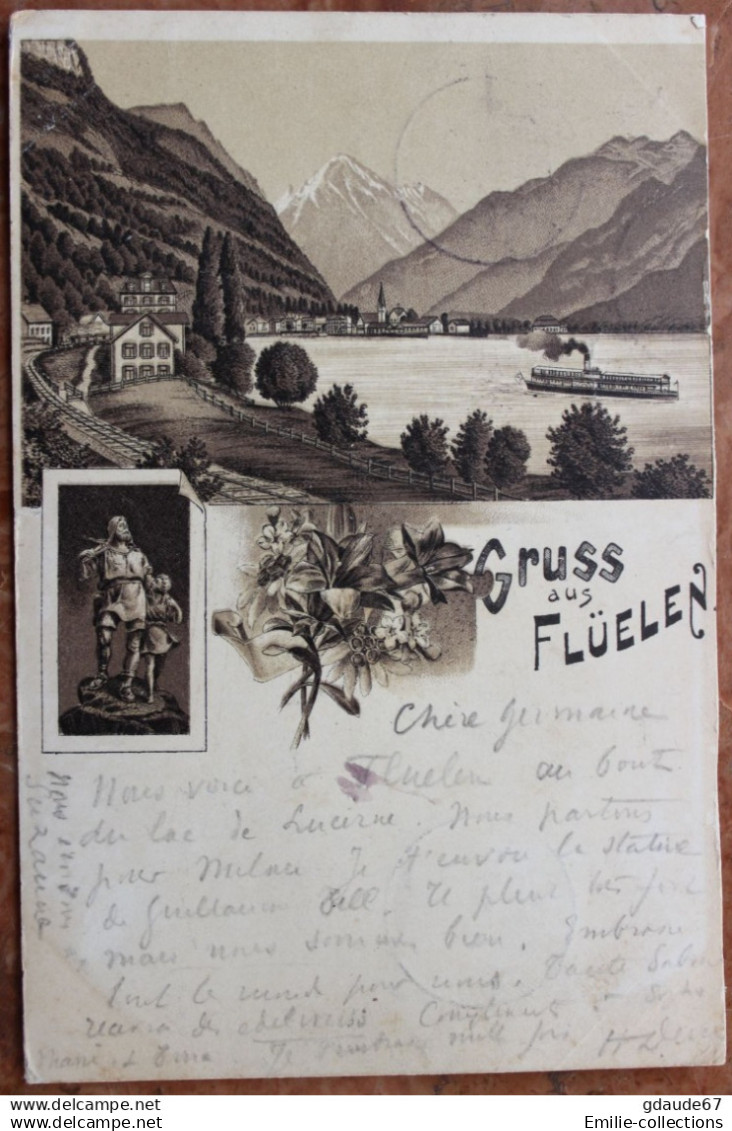 Gruss
aus
FLÜELEN
Chère Germaine
Nous voici à Fluelen au bout
du lac de Lucerne. Nous partons
pour Milan Je t'envoie la statue
de Guillaume Tell. Il pleut très fort
mais nous sommes bien. Embrasse
tout le monde pour nous. Tante
des edelweiss Compliments
mille fois
Nous
Suzanne
gdaude67
Emilie-collections